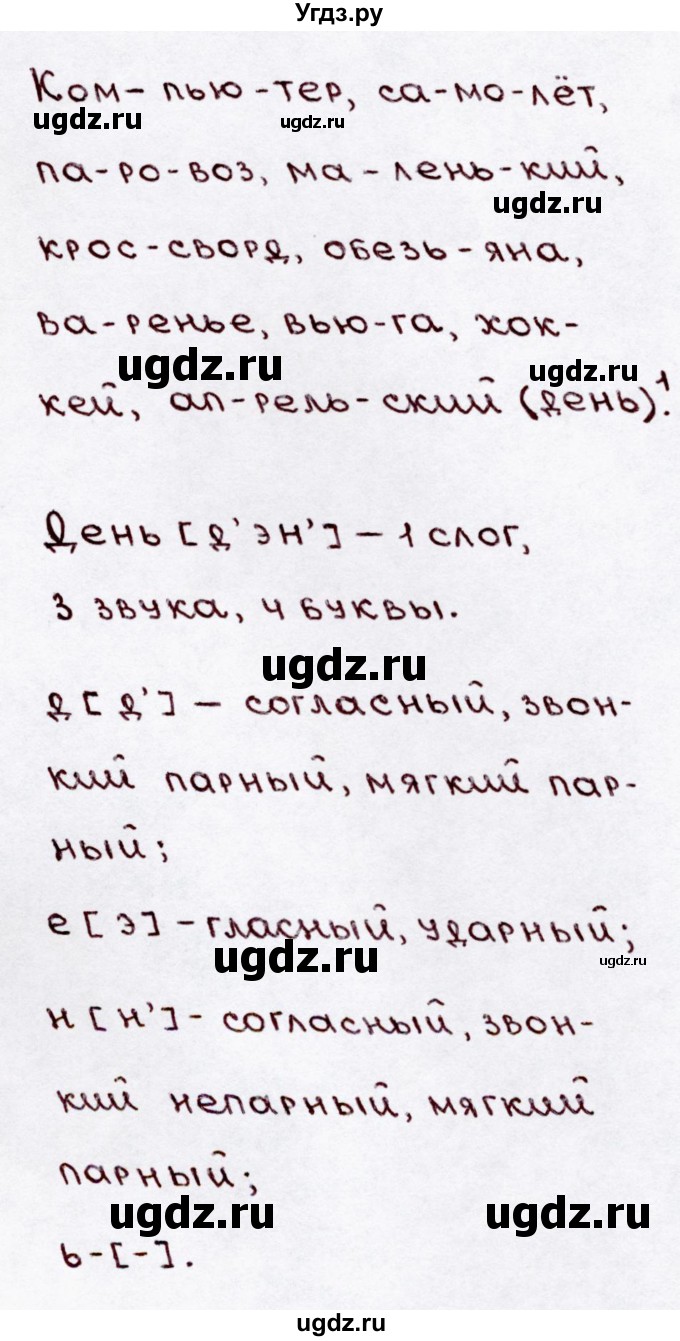 Угдз.ру
Ком-пью-тер, са-мо-лёт,
ugdz.ru
ugdz.ru
па-ро-воз, ма-лень-кий,
ugdz.ru
крос-сворд, обезь-яна,
ва-ренье, вью-га, хок-
ugdz.ru
ugdz.ru
кей, ап-рель-ский (день)!¹
День [д'эн'] – 1 слог,
3 звука, 4 буквы.
ugdz.ru
д [д'] – согласный, звон-
кий парный, мягкий пар-
ный;
е [э] - гласный, ударный;
ugdz.ru
ugdz.ru
н [н'] - согласный, звон-
кий непарный, мягкий
парный;
ugdz.ru
ugdz.ru
ь-[-].
ugdz.ru